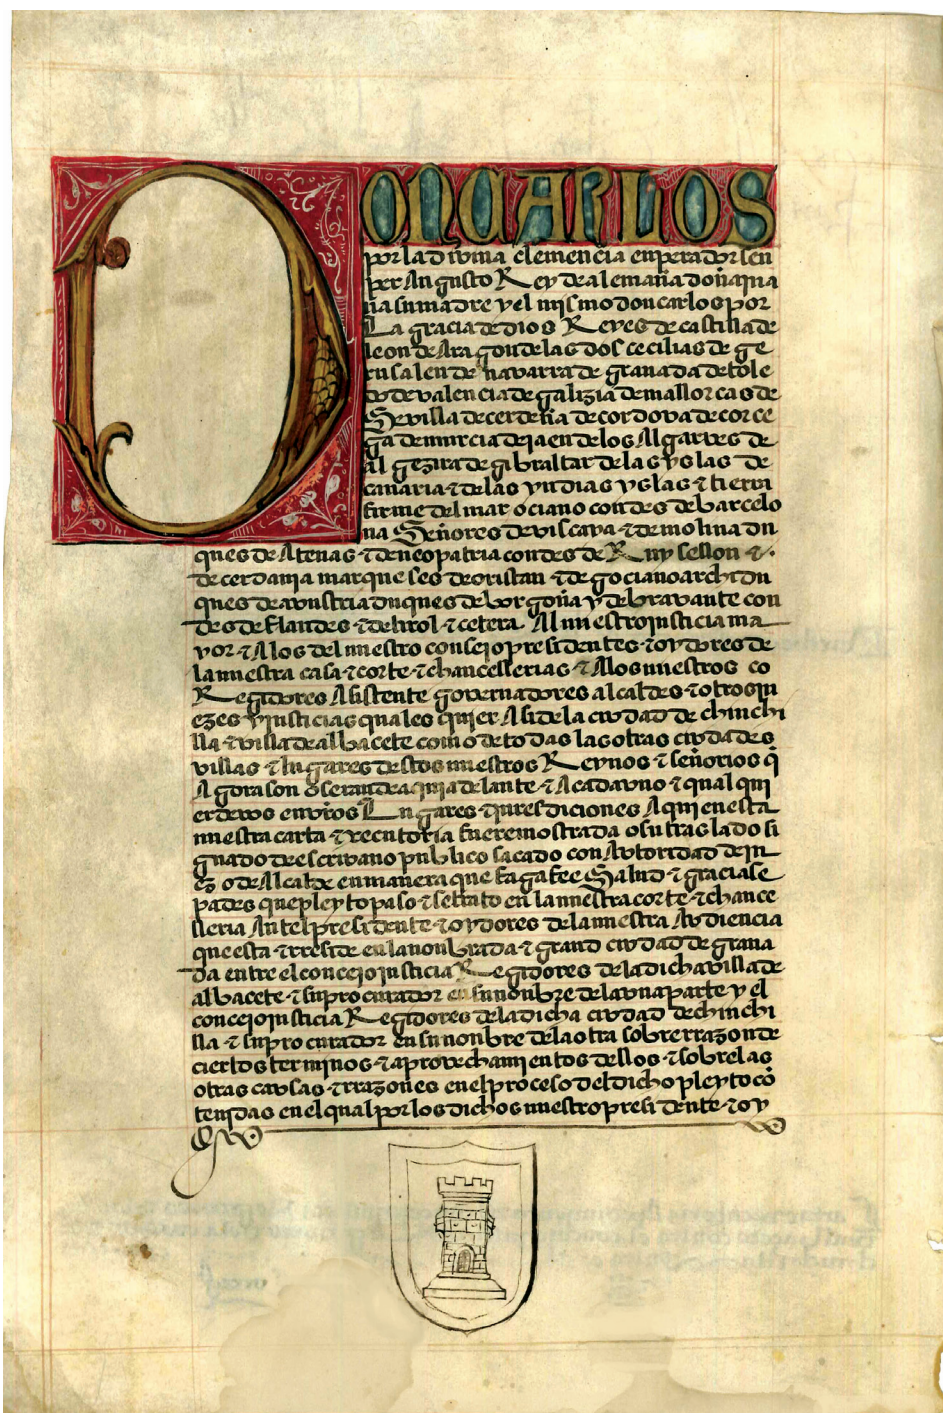 DON CARLOS
por la divina clemencia enperador sen
per Augusto Rey de alemaña doña jua
na su madre y el mismo don carlos por
La gracia de dios Reyes de castilla de
leon de Aragon de las dos cecilias de ge
rusalen de navarra de granada de tole
do de valencia de galizia de mallorcas de
Sevilla de cerdeña de cordova de corce
ga de murcia de jaen de los Algarves de
al gezira de gibraltar de las yslas de
canaria & de las yndias yslas & tierra
firme del mar ociano condes de barcelo
na Señores de viscaya & de molina du
ques de Atenas & de neopatria condes de Ruysellon &
de cerdania marqueses de oristan & de gociano archidu
ques de avustria duques de borgoña y de bravante con
des de flandes & de tirol & cetera Al nuestro justicia ma
yor & A los del nuestro consejo presidentes & oydores de
la nuestra casa & corte & chancellerias & A los nuestros co
Regidores Asistente governadores alcaldes & otros ju
ezes y justicias quales quier Asi de la civdad de chinchi
lla & villa de albacete como de todas las otras civdades
villas & lugares destos nuestros Reynos & señorios q̃
Agora son o seran de aqui adelante & A cada uno & qual qui
er de vos en vr̃os Lugares & juresdiciones A quien esta
nuestra carta executoria fuere mostrada o su traslado si
gnado de escrivano publico sacado con Avtoridad de ju
ez o de Alcalde en manera que faga fee Salud & gracia se
pades que pleyto paso & se trato en la nuestra corte & chance
lleria Ante el presidente & oydores de la nuestra Avdiencia
que esta & rreside en la nonbrada & grand civdad de grana
da entre el concejo justicia Regidores de la dicha villa de
albacete & su procurador en su nonbre de la una parte y el
concejo justicia Regidores de la dicha civdad de chinchi
lla & su procurador en su nonbre de la otra sobre rrazon de
ciertos terminos & aprovechamientos dellos & sobre las
otras cavsas & rrazones en el proceso del dicho pleyto cõ
tenidas en el qual por los dichos nuestro presidente & oy